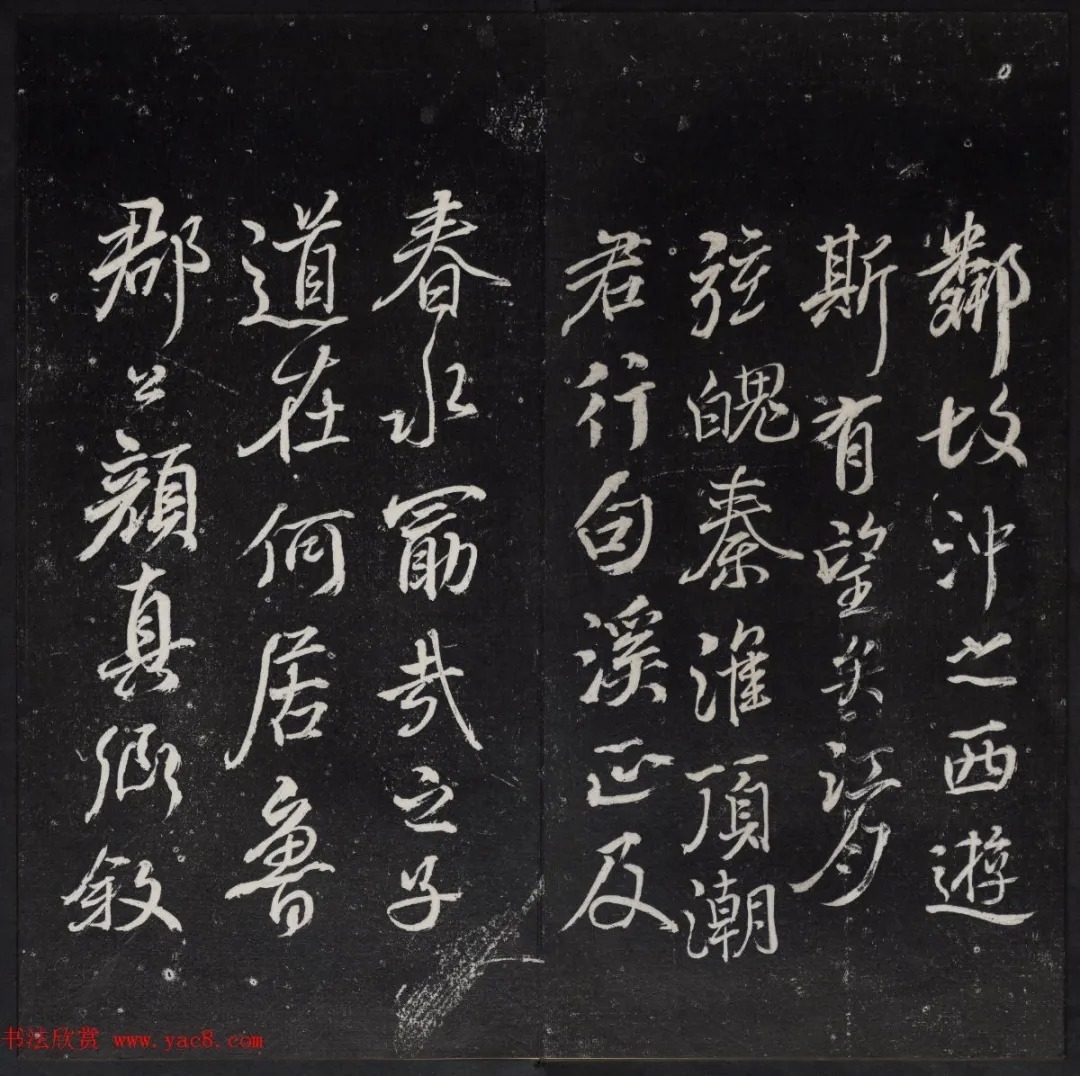 鄰故沖之西遊
斯有望矣江月
弦魄秦淮頂潮
君行句溪正及
春水勗哉之子
道在何居魯
郡公顏真卿敘
书法欣赏 www.yac8.com